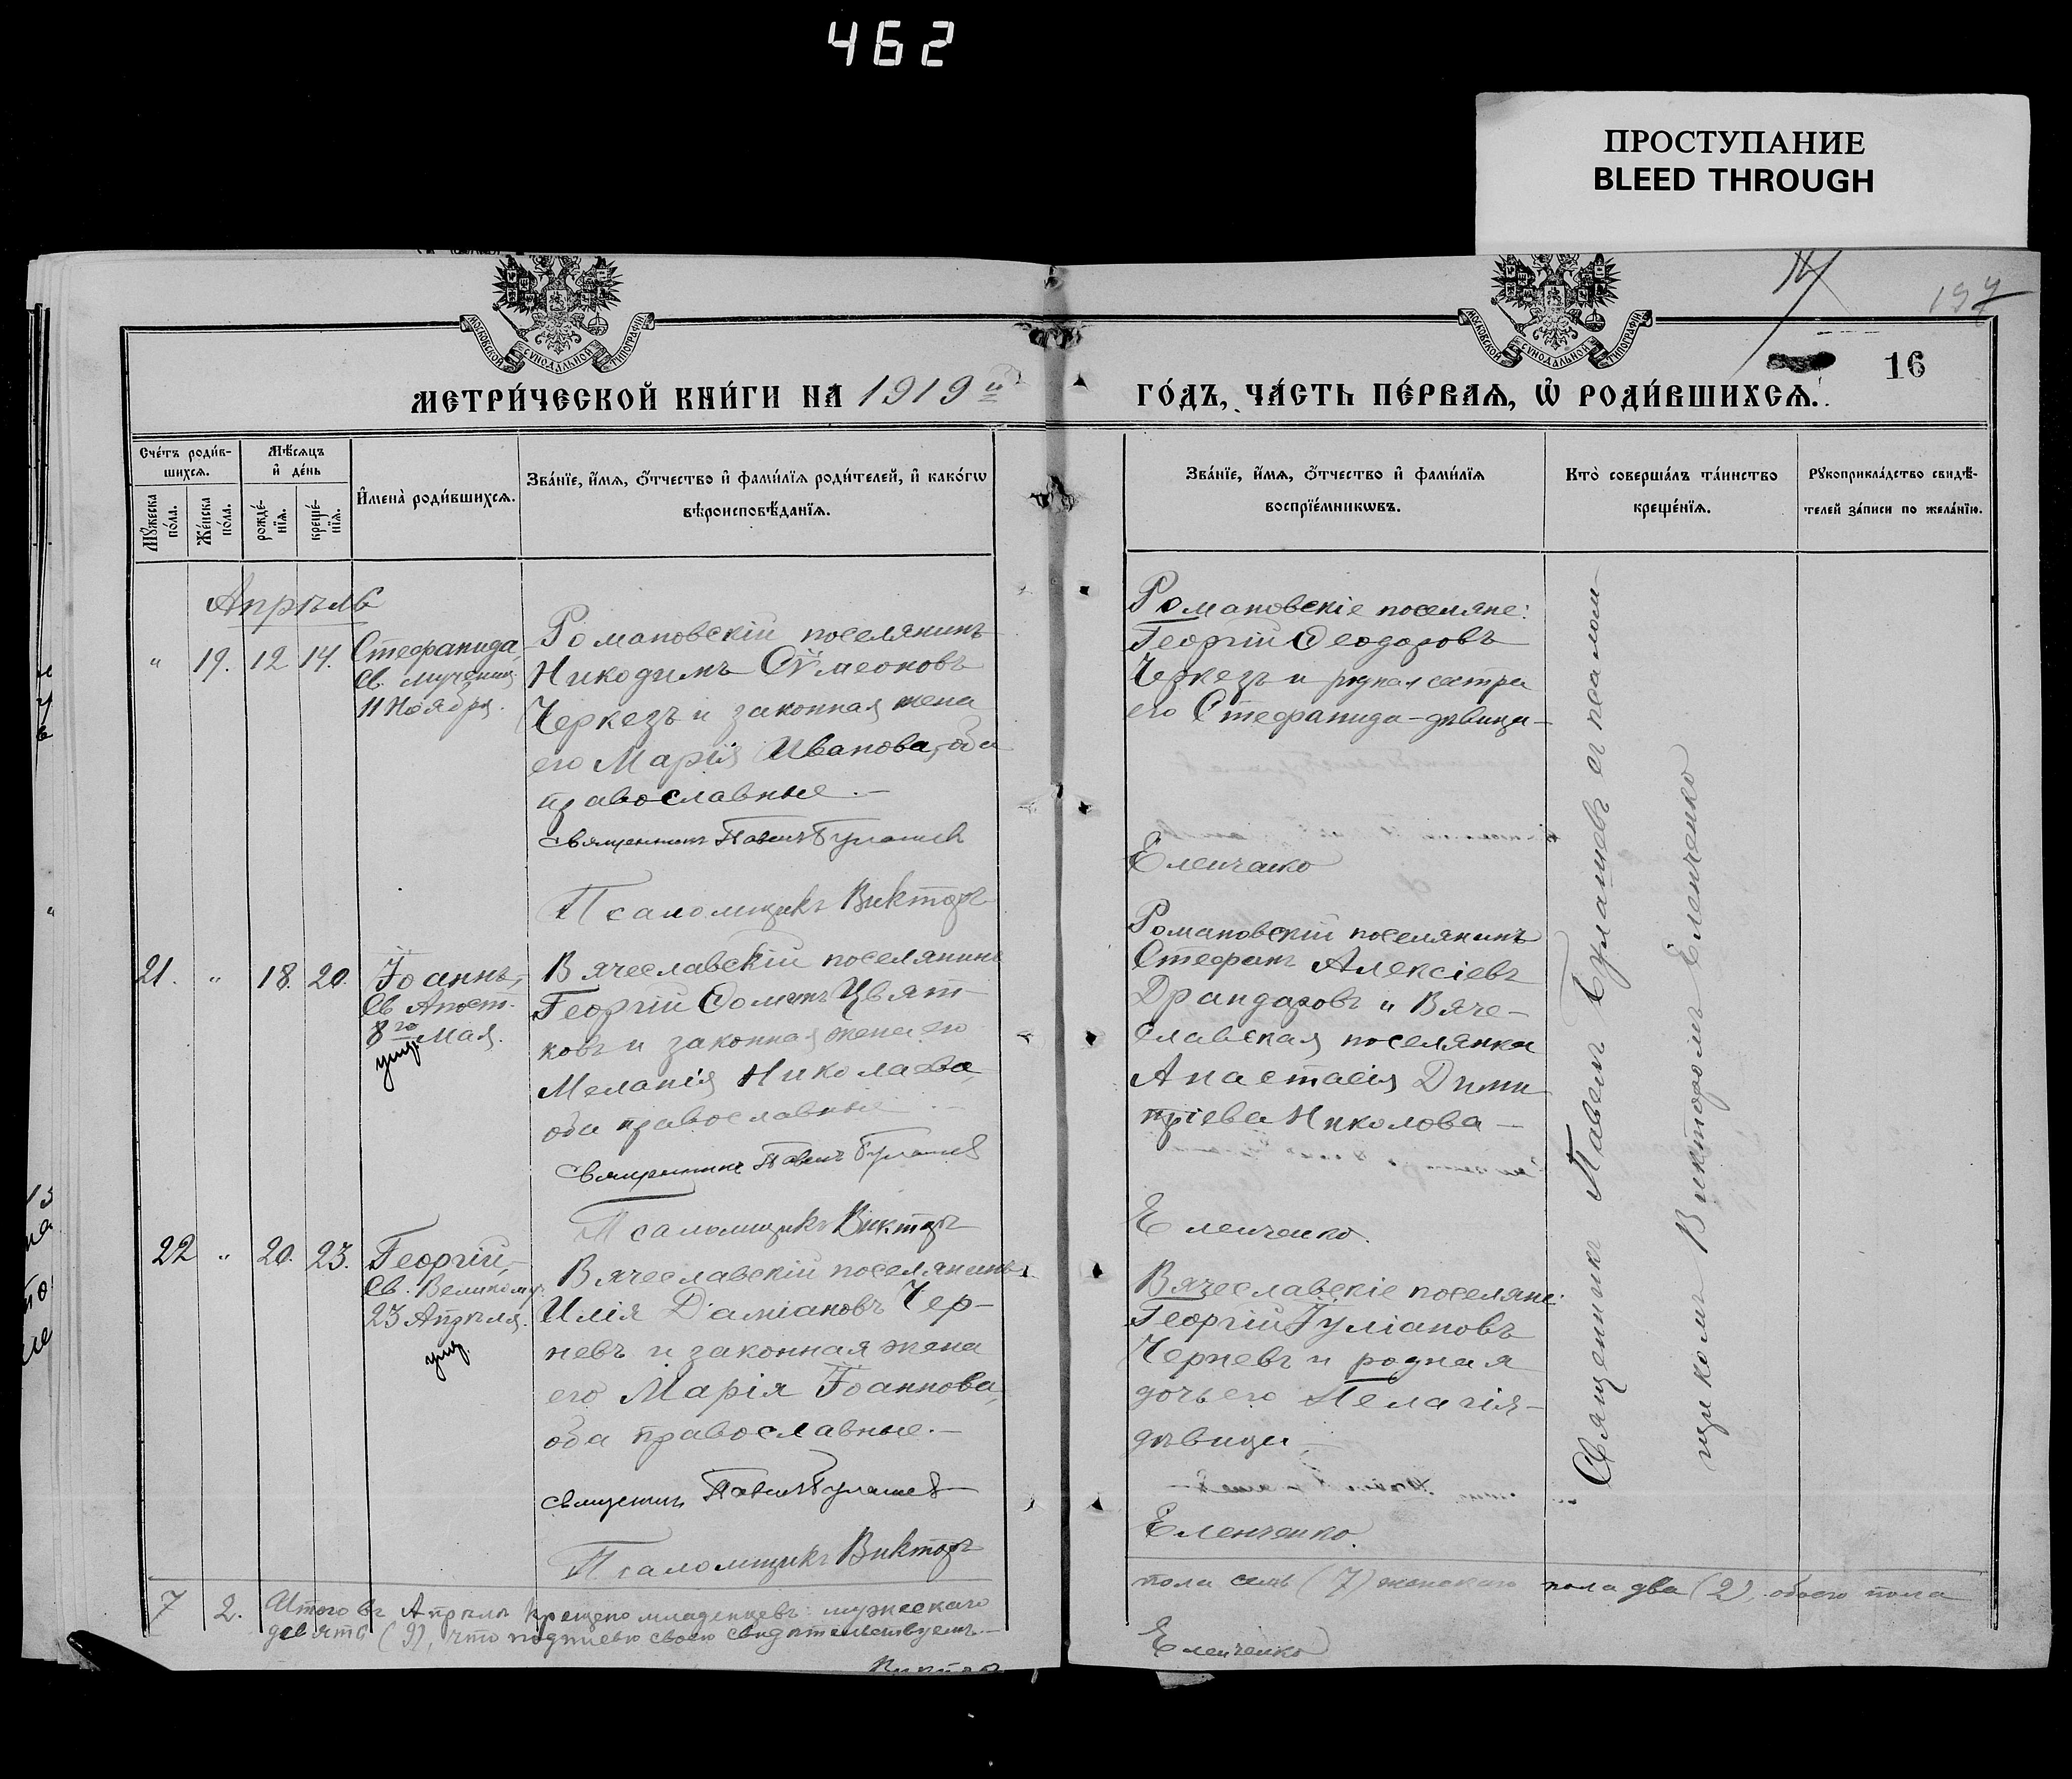 462
ПРОСТУПАНИЕ
BLEED THROUGH
МОСКОВСКОЙ СѴНОДАЛЬНОЙ ТИПОГРАФІИ
МОСКОВСКОЙ СѴНОДАЛЬНОЙ ТИПОГРАФІИ
197
16
МЕТРИ́ЧЕСКОЙ КНИ́ГИ НА 1919й
ГО́ДЪ, ЧА́СТЬ ПЕ́РВАѦ, Ѡ҆ РОДИ́ВШИХСѦ.
Сче́тъ роди́в-
шихсѧ.
Мꙋ́жеска
по́ла.
Же́нска
по́ла.
Мѣ́сѧцъ
и҆ де́нь
рожде́-
нїѧ.
креще́-
нїѧ.
И҆мена̀ роди́вшихсѧ.
Зва́нїе, и҆́мѧ, ѻ҆́тчество и҆ фами́лїѧ роди́телей, и҆ како́гѡ
вѣроисповѣ́данїѧ.
Зва́нїе, и҆́мѧ, ѻ҆́тчество и҆ фами́лїѧ
воспрїе́мникѡвъ.
Кто̀ соверша́лъ та́инство
креще́нїѧ.
Рꙋкоприкла́дство свидѣ́-
телей за́писи по жела́нїю.
Апрѣль
" 19. 12 14.
Стефанида,
Св. мучениц.
11 Ноября.
Романовскій поселянинъ
Никодимъ Сѵмеоновъ
Черкезъ и законная жена
его Марія Иванова, оба
православные.–
Священникъ Павелъ Булашевъ
Псаломщикъ Викторъ
Романовскіе поселяне:
Георгій Ѳеодоровъ
Черкезъ и родная сестра
его Стефанида–дѣвица–
Еленченко
21. " 18. 20.
Іоаннъ,
Св Апост.
8го Мая.
умр.
Вячеславскій поселянинъ
Георгій Ѳоминъ Цвят-
ковъ и законная жена его
Меланія Николаева,
оба православные.–
Священникъ Павелъ Булашевъ
Псаломщикъ Викторъ
Романовскій поселянинъ
Стефанъ Алексіевъ
Драндаровъ и Вяче-
славская поселянка
Анастасія Дими
тріева Николова–
Еленченко.
22 " 20. 23.
Георгій,
Св. Великому.
23 Апрѣля.
умр.
Вячеславскій поселянинъ
Илія Даміановъ Чер-
невъ и законная жена
его Марія Іоаннова,
оба православные.–
Священникъ Павелъ Булашевъ
Псаломщикъ Викторъ
Вячеславскіе поселяне:
Георгій Іуліановъ
Черневъ и родная
дочь его Пелагія–
дѣвица–
Еленченко.
Священникъ Павелъ Булашевъ съ псалом-
щикомъ Викторомъ Еленченко
7 2. Итого въ Апрѣлѣ крещено младенцевъ: мужескаго
пола семь (7) женскаго пола два (2), обоего пола
девять (9), что подписью своею свидѣтельствуемъ.–
Еленченко